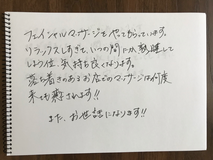 フェイシャルマッサージをやってもらっています。
リラックスしすぎて、いつの間にか熟睡して
しまう位、気持ち良くなります。
落ち着きのあるお店でのマッサージは何度
来ても癒されます!!
また、お世話になります!!